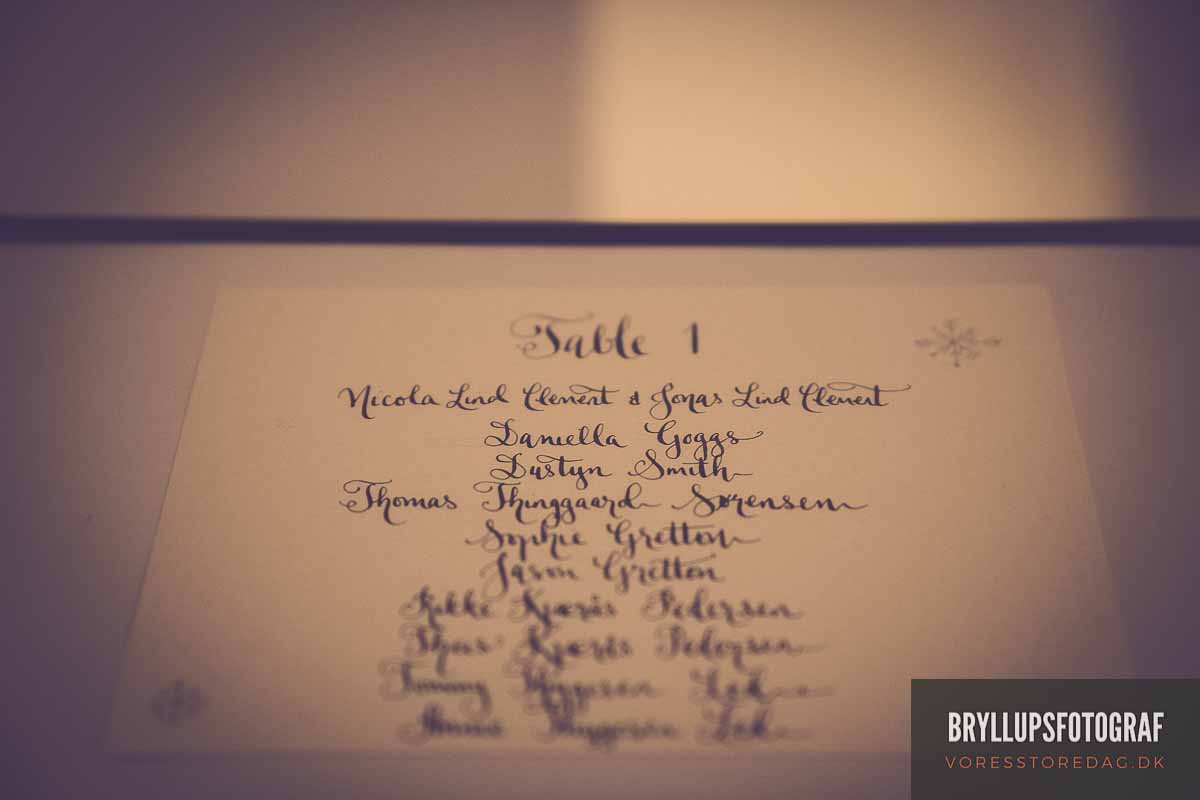 Table 1
Nicola Lind Clement & Jonas Lind Clement
Daniella Goggs
Dustyn Smith
Thomas Thinggaard Sørensen
Sophie Gretton
Jason Gretton
Rikke Kjæriis Pedersen
Kjæriis Pedersen
Tommy
BRYLLUPSFOTOGRAF
VORESSTOREDAG.DK